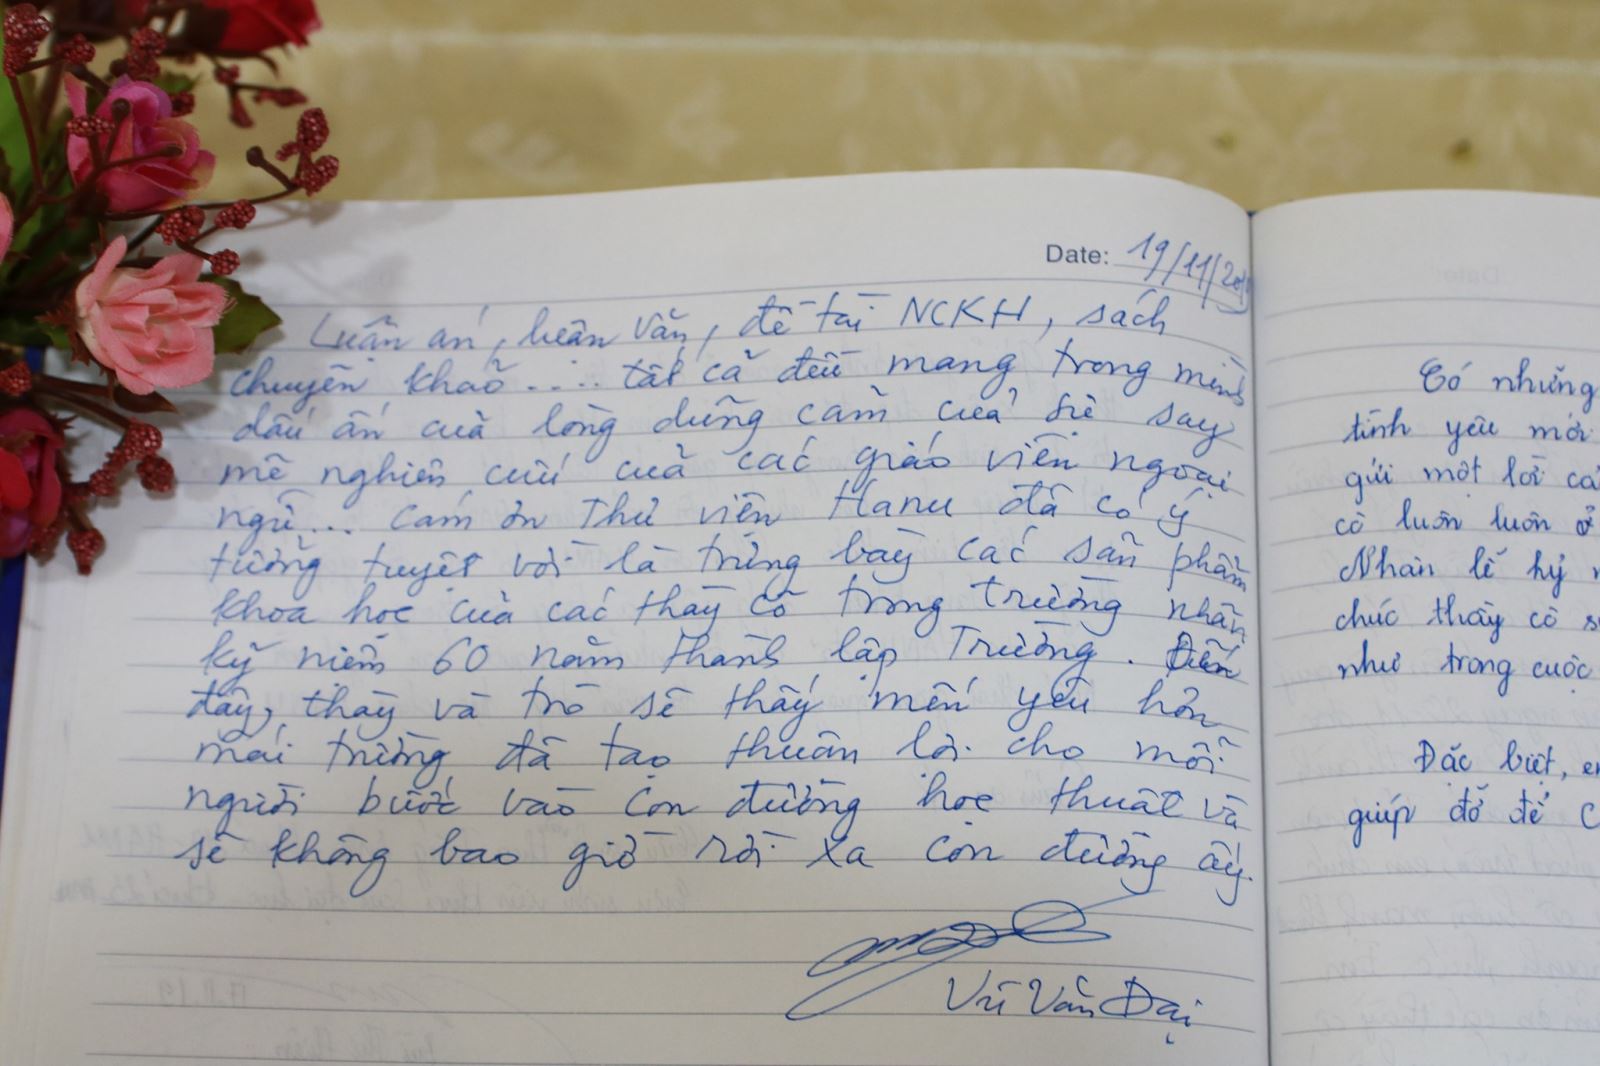 Date: 19/11/20
Luận án, luận văn, đề tài NCKH, sách
chuyên khảo.... tất cả đều mang trong mình
dấu ấn của lòng dũng cảm của sự say
mê nghiên cứu của các giáo viên ngoại
ngữ... Cám ơn Thư viện Hanu đã có ý
tưởng tuyệt vời là trưng bày các sản phẩm
khoa học của các thầy cô trong trường nhân
kỷ niệm 60 năm thành lập Trường. Đến
đây, thầy và trò sẽ thấy mến yêu hơn
mái trường đã tạo thuận lợi cho mỗi
người bước vào con đường học thuật và
sẽ không bao giờ rời xa con đường ấy.
Vũ Văn Đại
Có những
tình yêu mới
gửi một lời
cô luôn luôn ở
Nhân lễ kỷ
chúc thầy cô
như trong cuộc
Đặc biệt,
giúp đỡ để